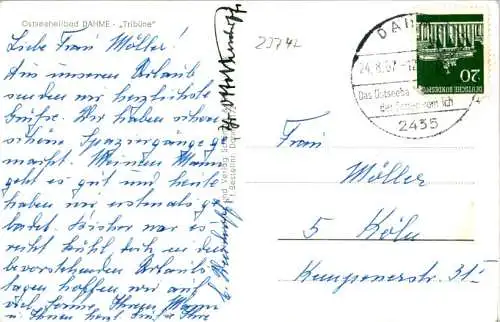 Ostseeheilbad DAHME - „Tribüne“
23742
Liebe Frau Möller!
Aus unserem Urlaub
senden wir herzlichste
Grüße. Wir haben schon
schöne Spaziergänge ge-
macht. Meinem Mann
geht es gut und heute
haben wir erstmals ge-
badet. Bisher war es
recht kühl, doch in den
bevorstehenden Urlaubs-
tagen hoffen wir auf
viel Sonne. Ihrem Mann
u. Ihnen herzl. Grüße Ihre
und Verlag
Bestellnr.
DAH
24.8.67 -12
Das Ostseebad
der Sonne vom Ich
2435
20
DEUTSCHE BUNDESPOST
Frau
Möller
5 Köln
Kempenerstr. 31